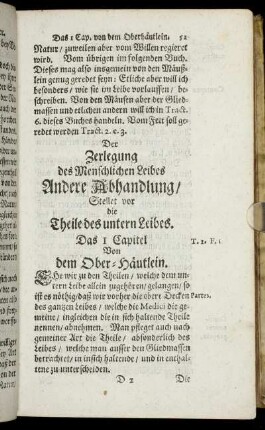 Das 1 Cap. von dem Oberhäutlein. 52
Natur/ zuweilen aber vom Willen regieret
wird. Vom übrigen im folgenden Buch.
Dieses mag also insgemein von den Mäuß-
lein genug geredet seyn: Etliche aber will ich
besonders/ wie sie im Leibe vorlauffen/ be-
schreiben. Von den Mäusen aber der Glied-
massen und etlichen andern will ich in Tract.
6. dieses Buches handeln. Vom Fett soll ge-
redet werden Tract. 2. c. 3.
Der
Zerlegung
des Menschlichen Leibes
Andere Abhandlung/
Stellet vor
die
Theile des untern Leibes.
Das I Capitel
T. 2. F. 1.
Von
dem Ober-Häutlein.
EHe wir zu den Theilen/ welche dem un-
tern Leibe allein zugehören/ gelangen/ so
ist es nöthig/ daß wir vorher die obere Decken
Partes.
des gantzen Leibes/ welche die Medici die ge-
meine/ ingleichen die in sich haltende Theile
nennen/ abnehmen. Man pfleget auch nach
gemeiner Art die Theile/ absonderlich des
Leibes/ welche man ausser den Gliedmassen
betrachtet/ in insich haltende/ und in enthal-
tene zu unterscheiden.
D 2
Die